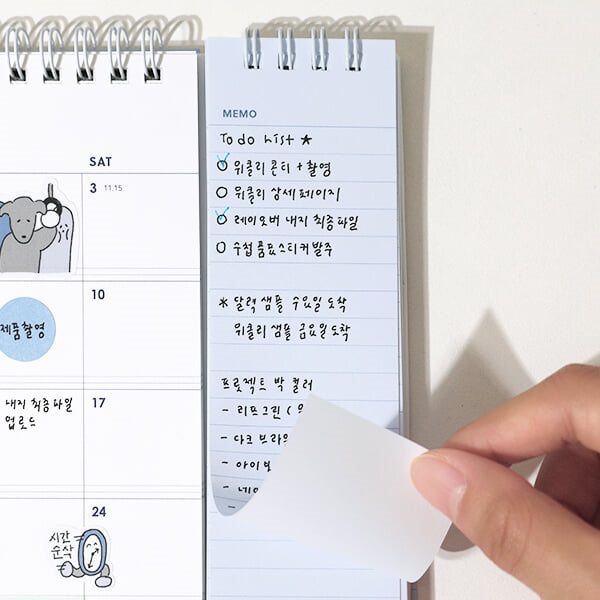 SAT
3 11.15
10
제품촬영
내지 최종파일
업로드
17
24
시간
순삭
MEMO
To do List *
위클리 콘티 + 촬영
위클리 상세페이지
레이오버 내지 최종파일
수첩 품표스티커 발주
* 달력 샘플 수요일 도착
위클리 샘플 금요일 도착
프로젝트 박 컬러
- 리프그린 (
- 다크 브라
- 아이보
- 네이
-